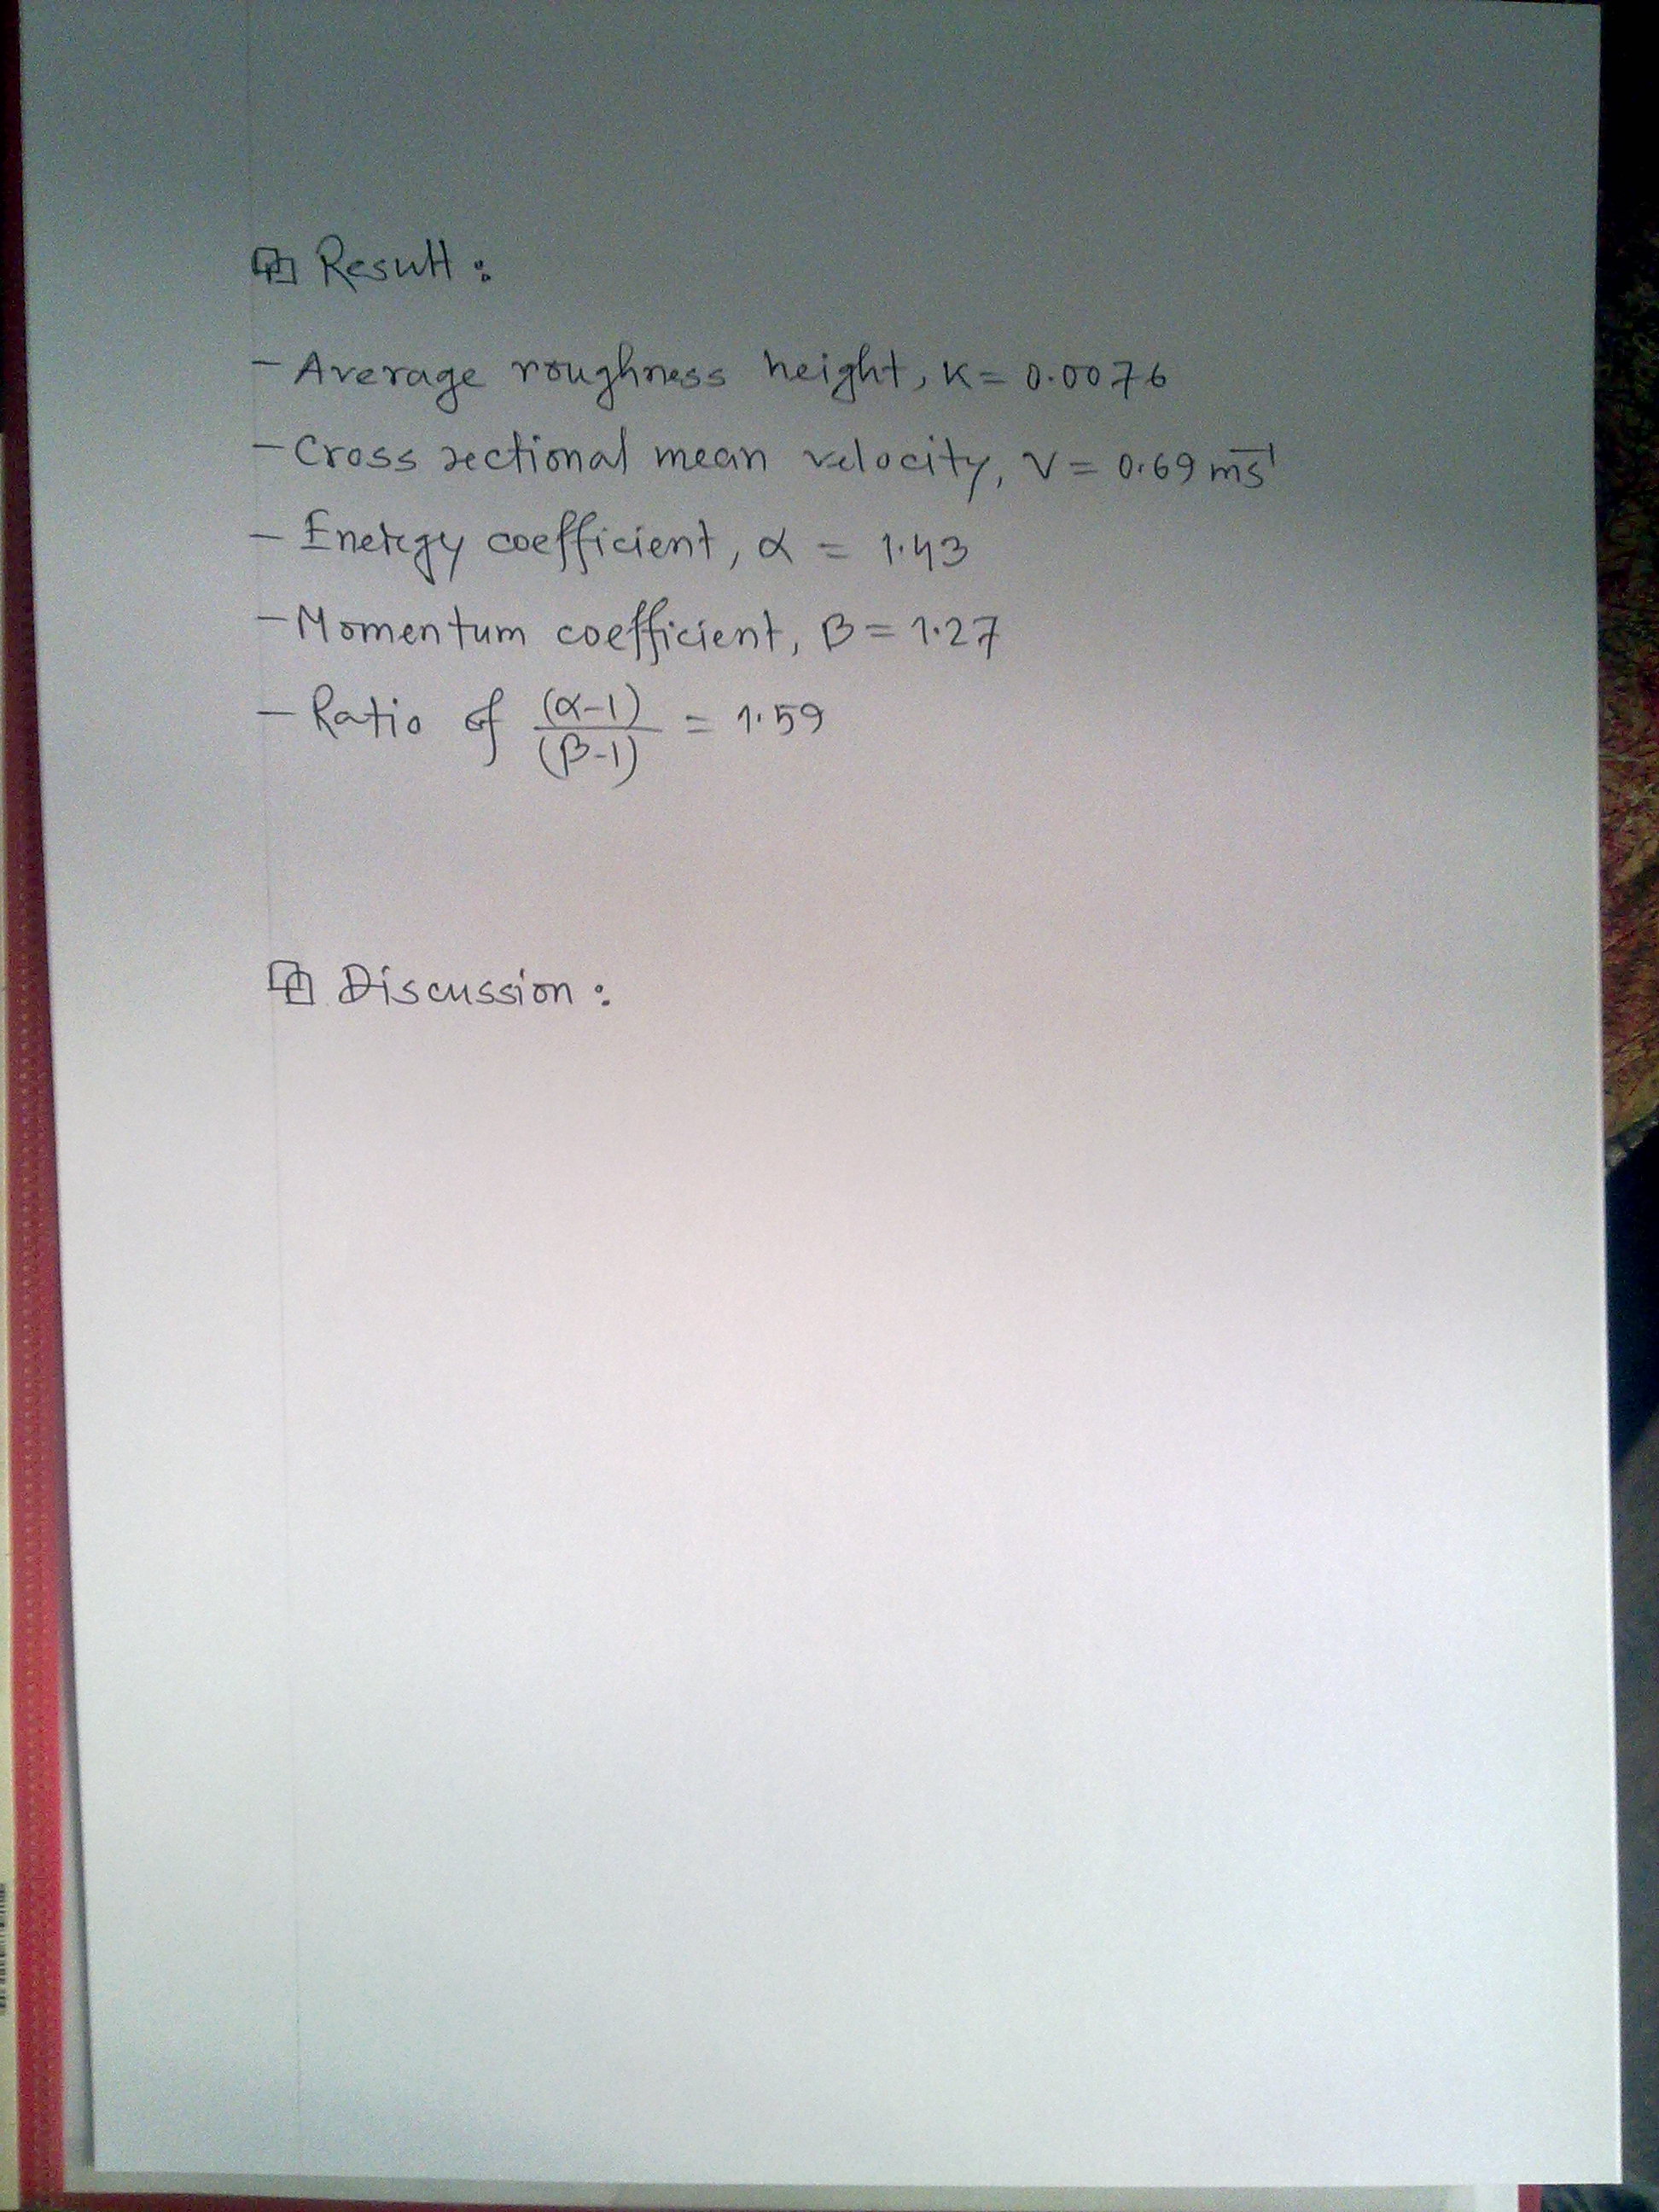 Result:
- Average roughness height, K = 0.0076
- Cross sectional mean velocity, V = 0.69 ms⁻¹
- Energy coefficient, α = 1.43
- Momentum coefficient, β = 1.27
- Ratio of (α-1)/(β-1) = 1.59
Discussion: